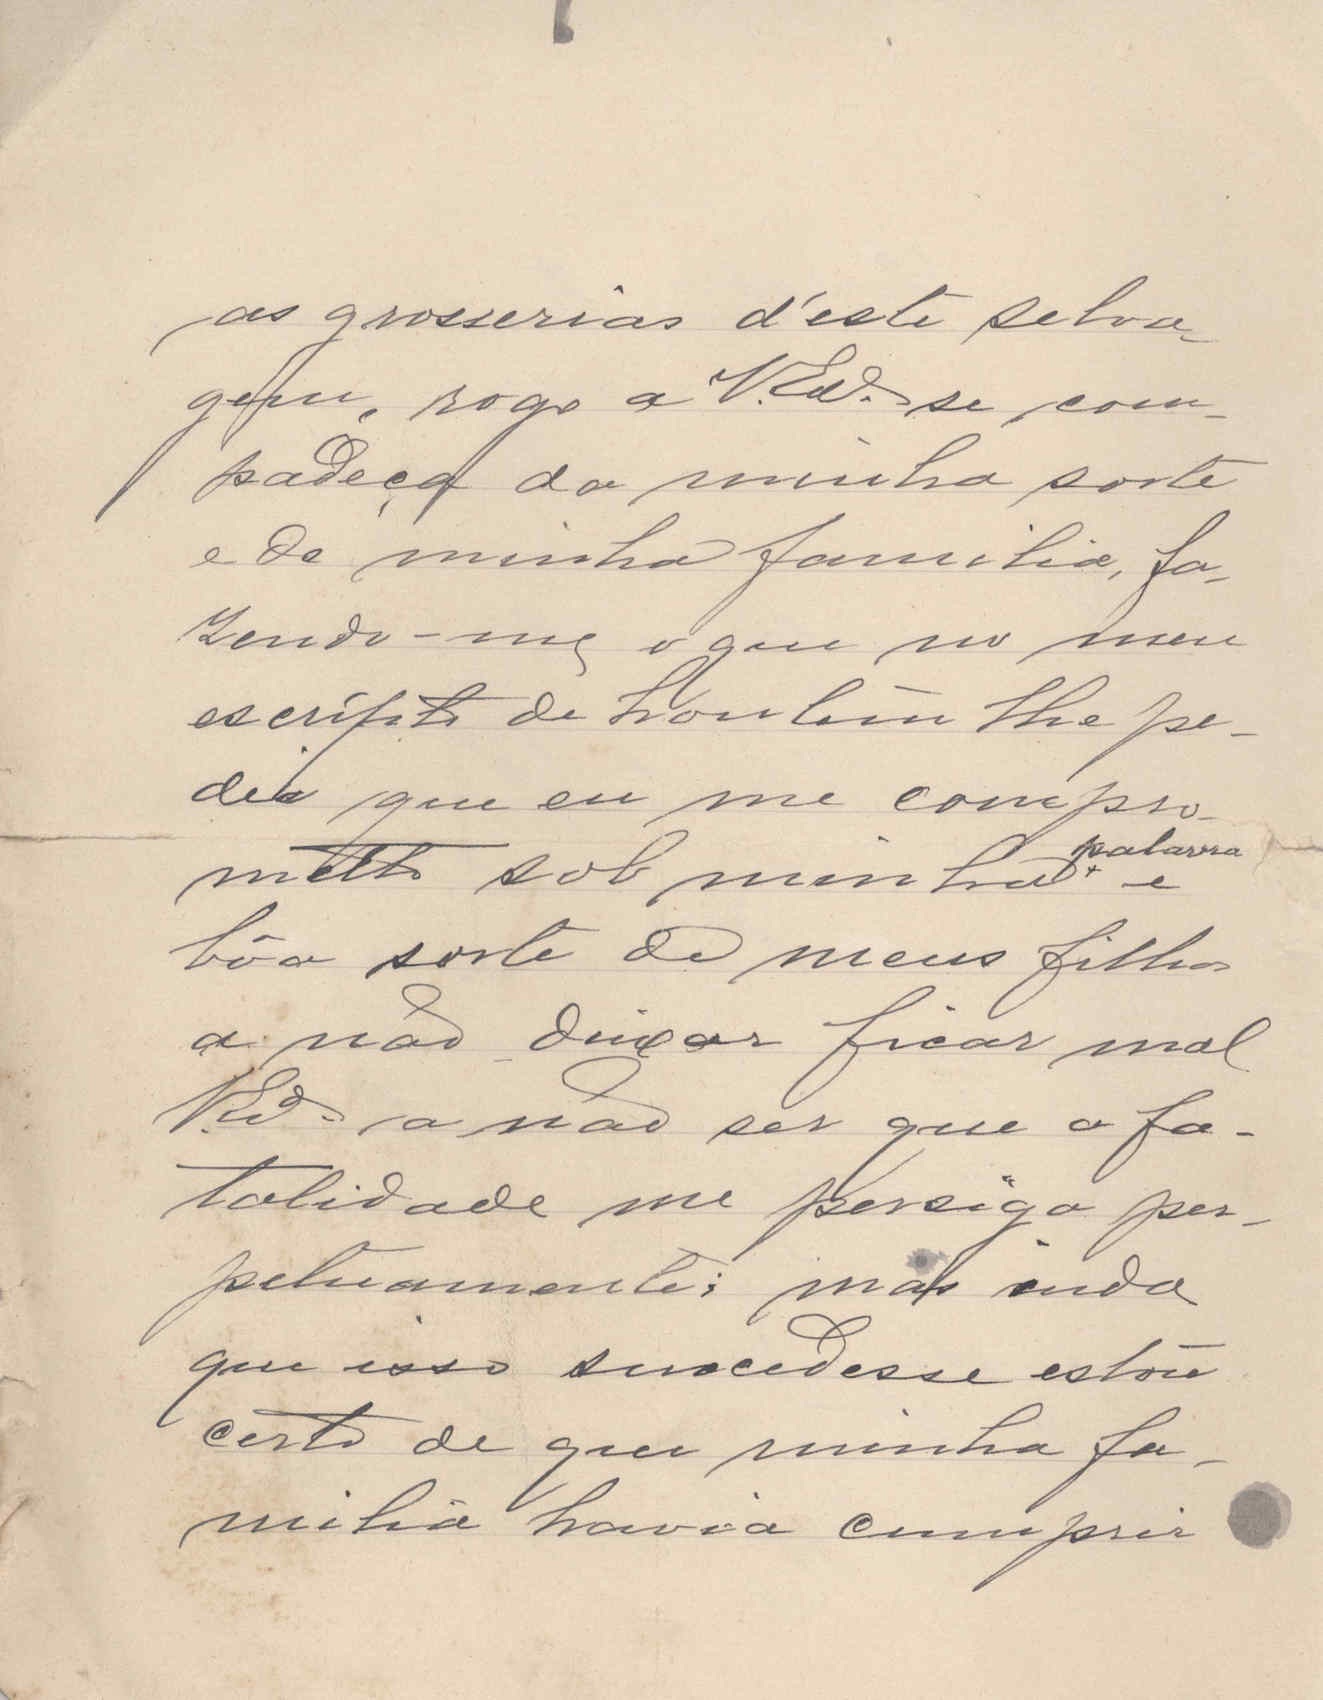 as grosserias d'este selva-
gem, rogo a V. Exª. se com-
padeça da minha sorte
e de minha familia, fa-
zendo-me o que no meu
escripto de hontem lhe pe-
dia que eu me compro-
metto sob minha palavra e
bôa sorte de meus filhos
a não deixar ficar mal
V. Exª. a não ser que a fa-
talidade me persiga per-
petuamente; mas inda
que isso succedesse estou
certo de que minha fa-
milia havia cumprir